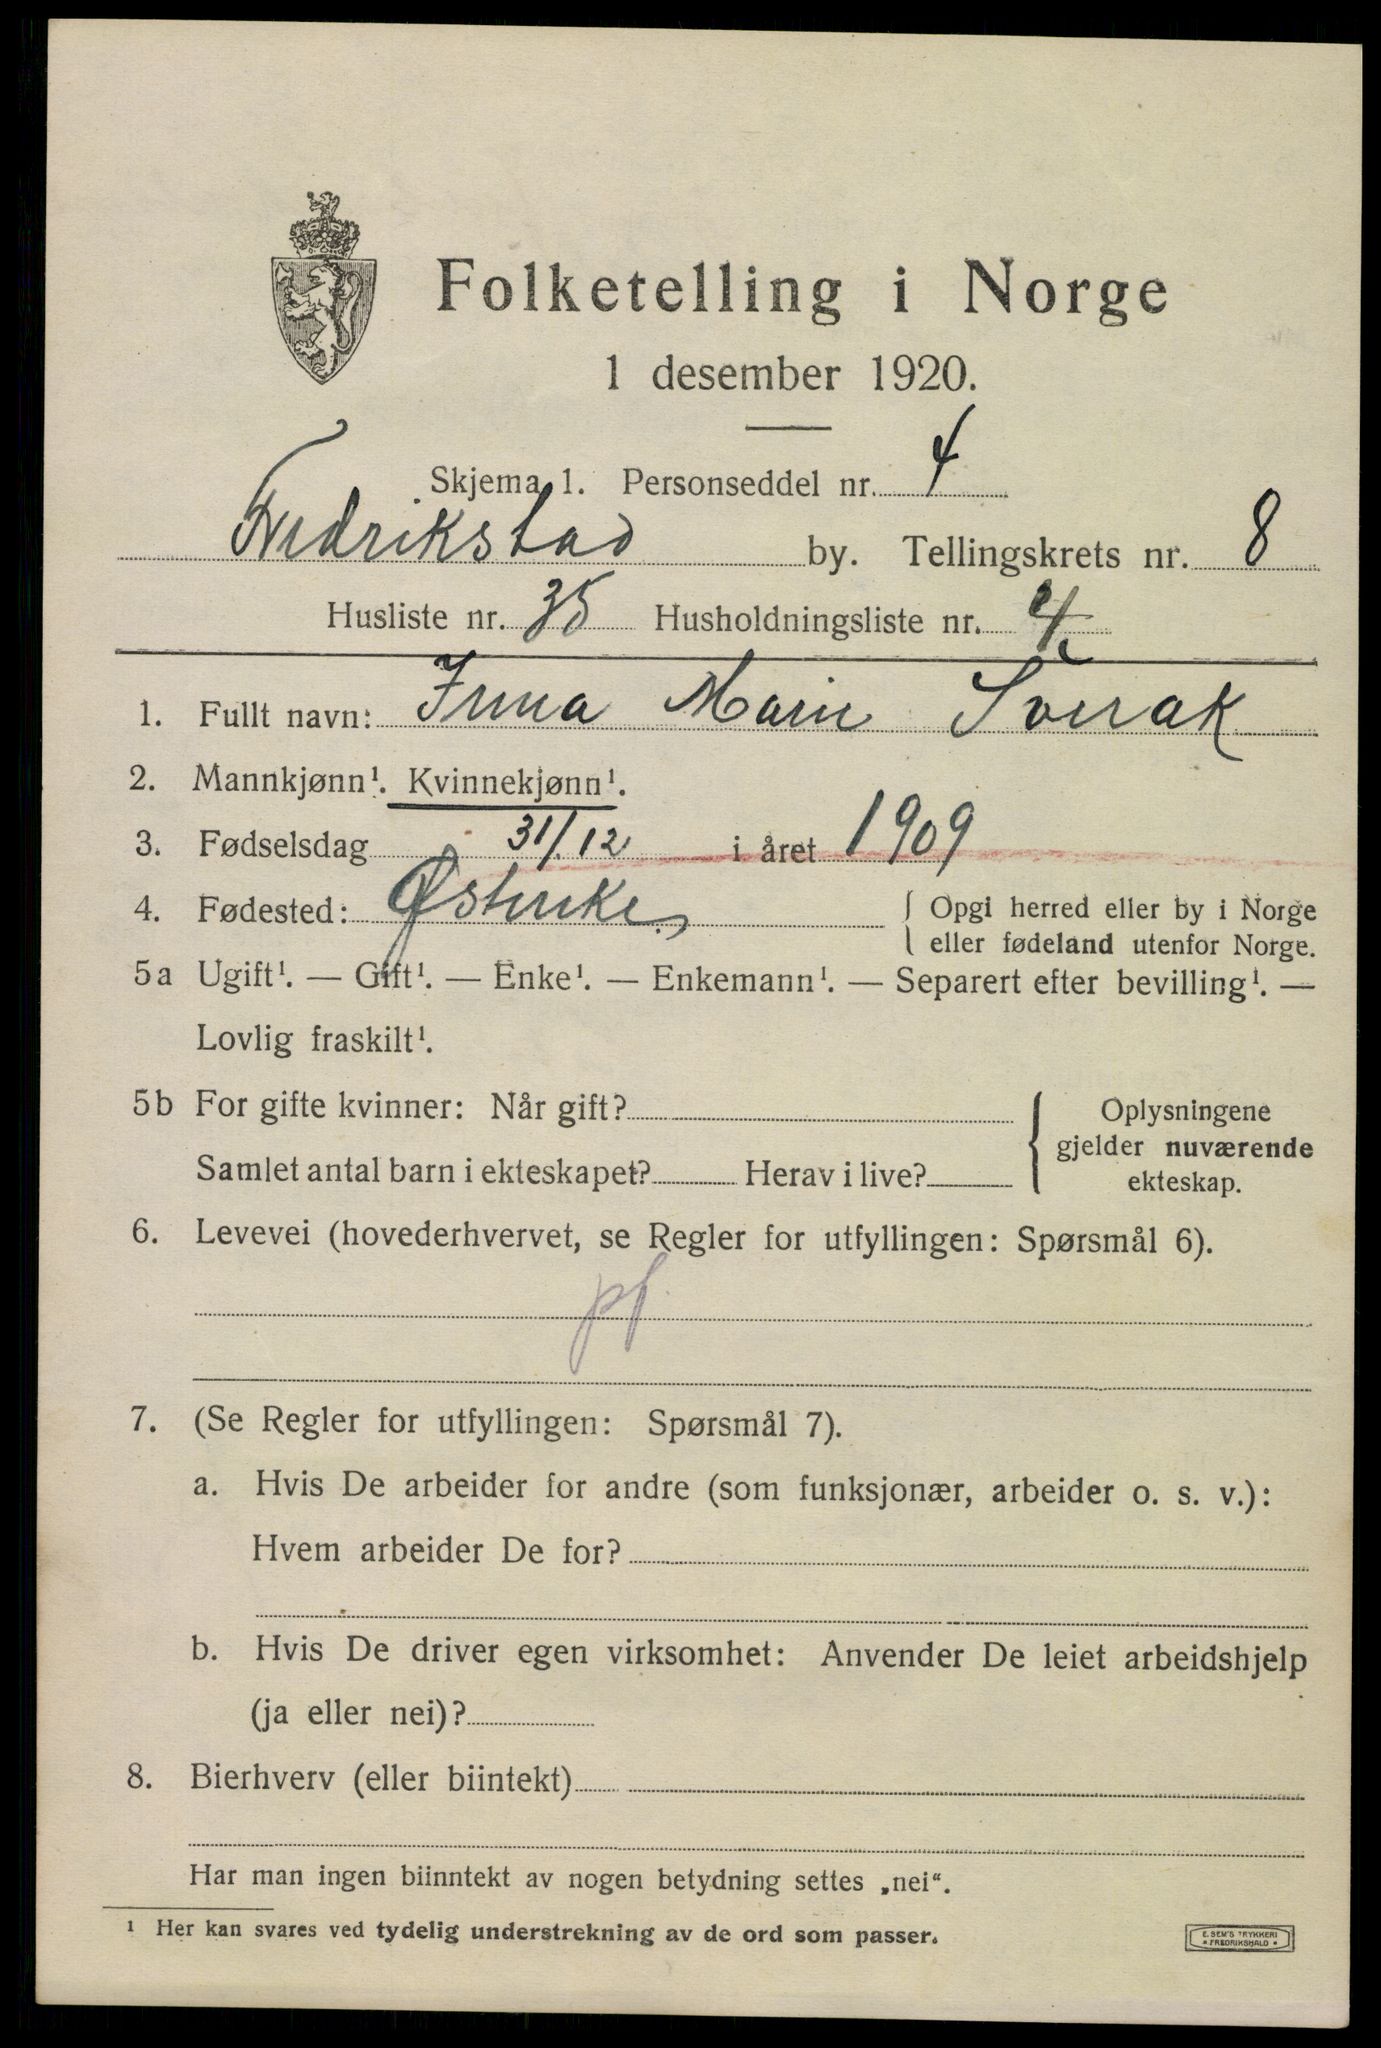 Folketelling i Norge
1 desember 1920.
Skjema 1. Personseddel nr. 4
Fredrikstad by. Tellingskrets nr. 8
Husliste nr. 35 Husholdningsliste nr. 4
1. Fullt navn: Irma Marie Sverak
2. Mannkjønn¹. Kvinnekjønn¹.
3. Fødselsdag 31/12 i året 1909
4. Fødested: Østerrike { Opgi herred eller by i Norge
eller fødeland utenfor Norge.
5a Ugift¹. — Gift¹. — Enke¹. — Enkemann¹. — Separert efter bevilling¹. —
Lovlig fraskilt¹.
5b For gifte kvinner: Når gift?
Samlet antal barn i ekteskapet? Herav i live?
Oplysningene
gjelder nuværende
ekteskap.
6. Levevei (hovederhvervet, se Regler for utfyllingen: Spørsmål 6).
pf.
7. (Se Regler for utfyllingen: Spørsmål 7).
a. Hvis De arbeider for andre (som funksjonær, arbeider o. s. v.):
Hvem arbeider De for?
b. Hvis De driver egen virksomhet: Anvender De leiet arbeidshjelp
(ja eller nei)?
8. Bierhverv (eller biintekt)
Har man ingen biinntekt av nogen betydning settes „nei“.
¹ Her kan svares ved tydelig understrekning av de ord som passer.
E. SEM'S TRYKKERI
• FREDRIKSHALD •